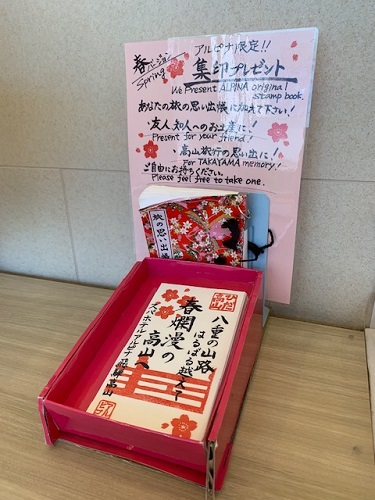 春バージョン
Spring
アルピナ限定!!
集印プレゼント
We Present ALPINA original
stamp book.
あなたの旅の思い出帳に加えて下さい!
・友人、知人へのお土産に!
Present for your friend!
・高山旅行の思い出に!
For TAKAYAMA memory!
ご自由にお持ちください。
Please feel free to take one.
旅の思い出
ひだ
高山
八重の山路
はるばる越えて
春爛漫の
高山へ
スパホテルアルピナ飛騨高山